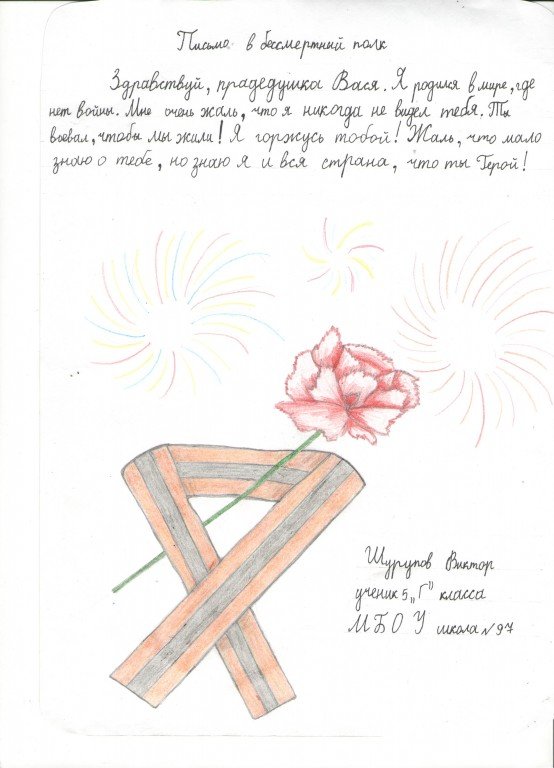 Письмо в бессмертный полк
Здравствуй, прадедушка Вася. Я родился в мире, где
нет войны. Мне очень жаль, что я никогда не видел тебя. Ты
воевал, чтобы мы жили! Я горжусь тобой! Жаль, что мало
знаю о тебе, но знаю я и вся страна, что ты Герой!
Шурупов Виктор
ученик 5 „Г" класса
МБОУ школа №97